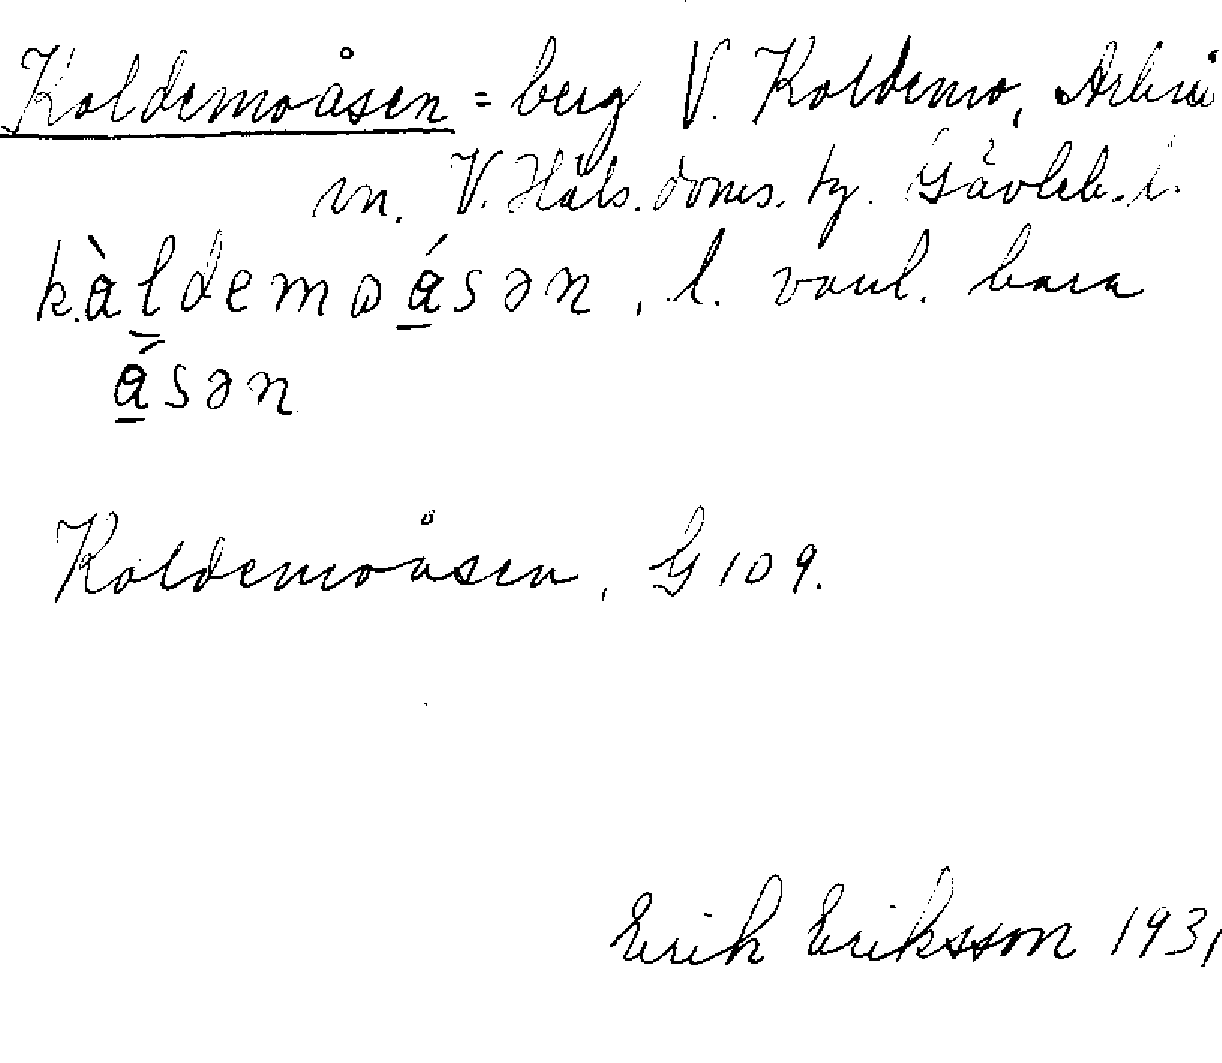 Koldemoåsen = berg V. Koldemo, Arbrå
sn. V. Häls. doms. hg. Gävleb. l.
k.àldemoåsən, l. vanl. bara
åsən
Koldemoåsen, G 109.
Erik Eriksson 1931